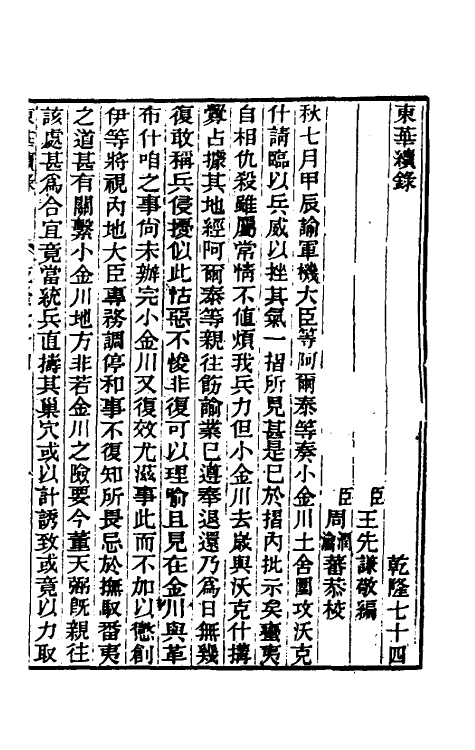 東華續錄　乾隆七十四
臣王先謙敬編
臣周潤蕃周瀹蕃恭校
秋七月甲辰諭軍機大臣等阿爾泰等奏小金川土舍圍攻沃克
什請臨以兵威以挫其氣一摺所見甚是已於摺內批示矣蠻夷
自相仇殺雖屬常情不值煩我兵力但小金川去歲與沃克什搆
釁占據其地經阿爾泰等親往飭諭業已遵奉退還乃爲日無幾
復敢稱兵侵擾似此怙惡不悛非復可以理喻且見在金川與革
布什咱之事尙未辦完小金川又復效尤滋事此而不加以懲創
伊等將視內地大臣專務調停和事不復知所畏忌於撫馭番夷
之道甚有關繫小金川地方非若金川之險要今董天弼旣親往
該處甚爲合宜竟當統兵直擣其巢穴或以計誘致或竟以力取